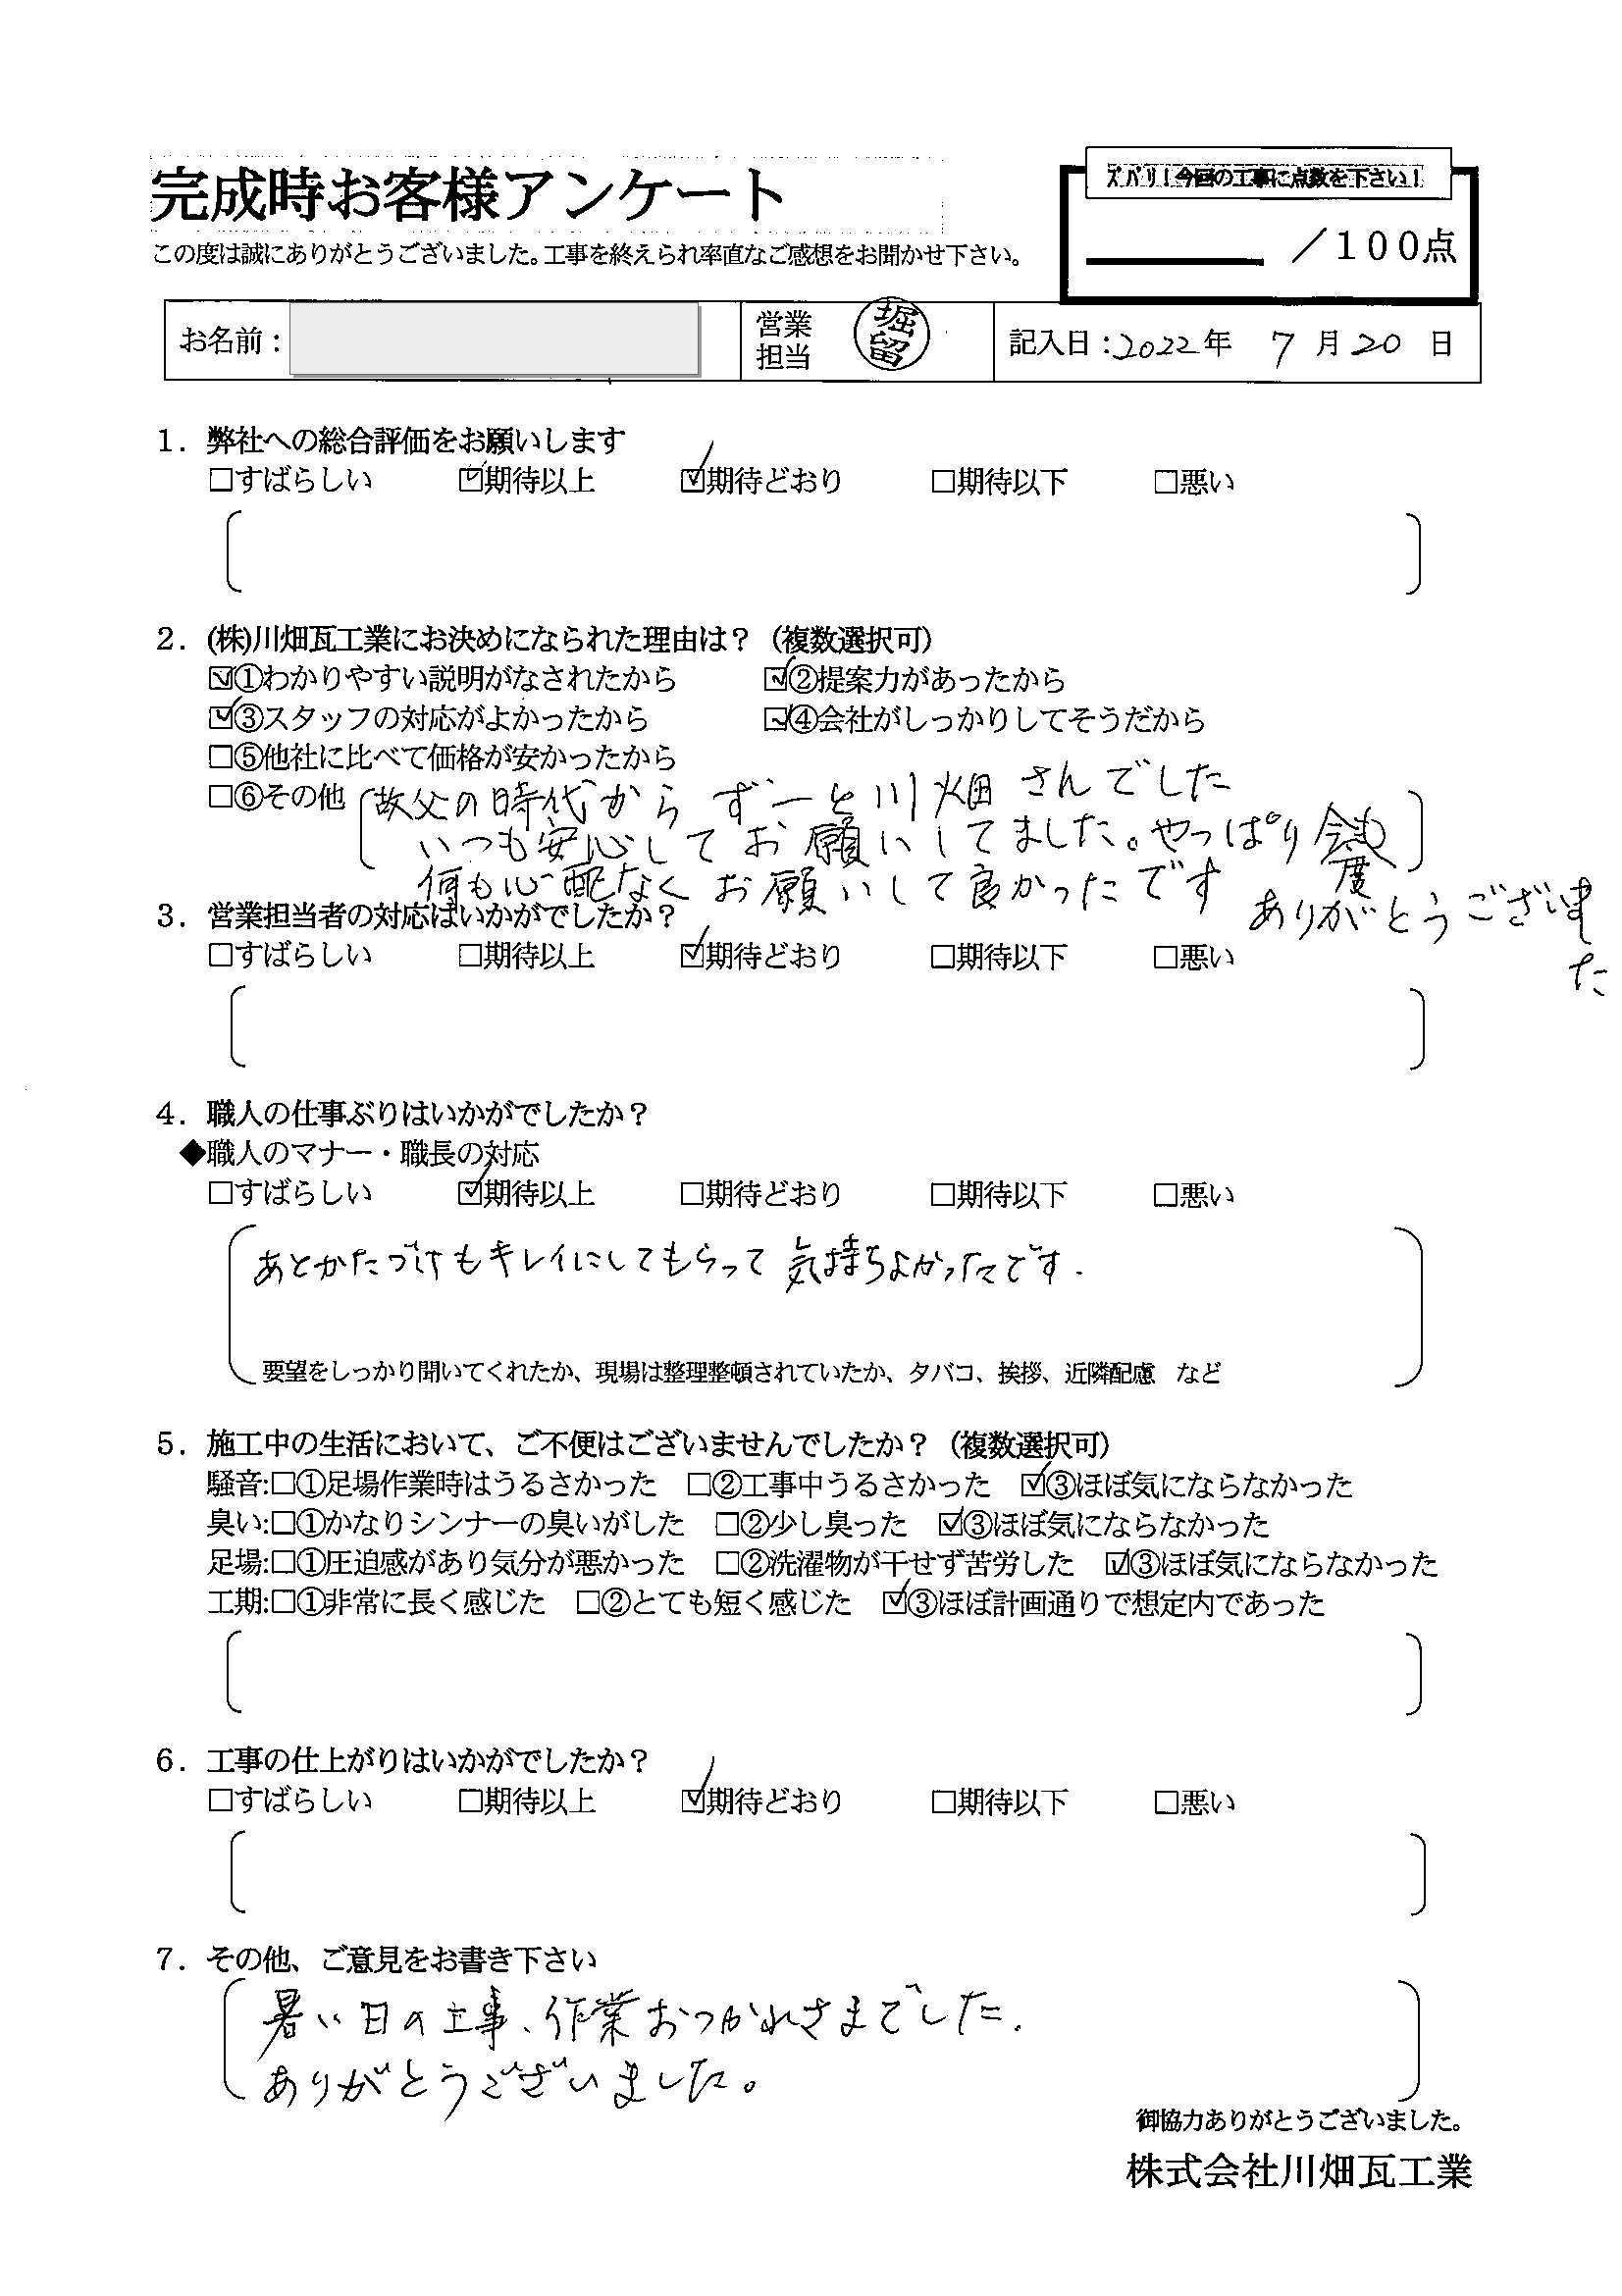 完成時お客様アンケート
この度は誠にありがとうございました。工事を終えられ率直なご感想をお聞かせ下さい。
ズバリ!今回の工事に点数を下さい!
／100点
お名前：
営業担当
堀留
記入日：2022年 7月20日
1．弊社への総合評価をお願いします
□すばらしい ☑期待以上 ☑期待どおり □期待以下 □悪い
2．(株)川畑瓦工業にお決めになられた理由は？（複数選択可）
☑①わかりやすい説明がなされたから ☑②提案力があったから
☑③スタッフの対応がよかったから ☑④会社がしっかりしてそうだから
□⑤他社に比べて価格が安かったから
□⑥その他 故父の時代から ずーと川畑さんでした
いつも安心してお願いしてました。やっぱり今度も
何も心配なくお願いして良かったです
ありがとうございました
3．営業担当者の対応はいかがでしたか？
□すばらしい □期待以上 ☑期待どおり □期待以下 □悪い
4．職人の仕事ぶりはいかがでしたか？
◆職人のマナー・職長の対応
□すばらしい ☑期待以上 □期待どおり □期待以下 □悪い
あとかたづけもキレイにしてもらって気持ちよかったです.
要望をしっかり聞いてくれたか、現場は整理整頓されていたか、タバコ、挨拶、近隣配慮 など
5．施工中の生活において、ご不便はございませんでしたか？（複数選択可）
騒音:□①足場作業時はうるさかった □②工事中うるさかった ☑③ほぼ気にならなかった
臭い:□①かなりシンナーの臭いがした □②少し臭った ☑③ほぼ気にならなかった
足場:□①圧迫感があり気分が悪かった □②洗濯物が干せず苦労した ☑③ほぼ気にならなかった
工期:□①非常に長く感じた □②とても短く感じた ☑③ほぼ計画通りで想定内であった
6．工事の仕上がりはいかがでしたか？
□すばらしい □期待以上 ☑期待どおり □期待以下 □悪い
7．その他、ご意見をお書き下さい
暑い日の工事、作業おつかれさまでした.
ありがとうございました。
御協力ありがとうございました。
株式会社川畑瓦工業